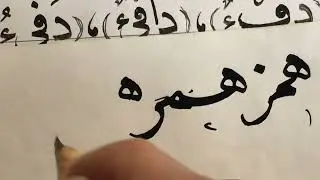 (دفءٌ)، ((دافئٌ))، ((دفيءٌ
همز همزه